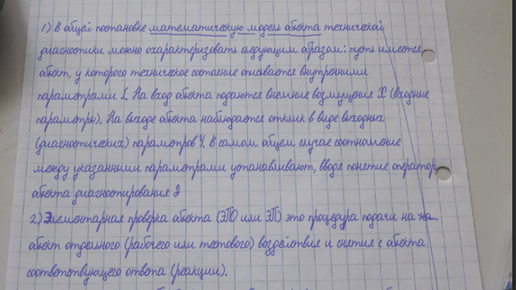 1) В общей постановке математическую модель обекта технической
диагностики можно охарактеризовать следующим образом: пусть имеется
обект, у которого техническое состояние описывается внутренними
параметрами Z. На вход обекта подаются внешние возмущения X (входные
параметры). На выходе обекта наблюдается отклик в виде выходных
(диагностических) параметров Y. В самом общем случае соотношение
между указанными параметрами устанавливают, вводя понятие оператор
обекта диагностирования
2) Элементарная проверка обекта (ЭПО или ЭП) это процедура подачи на
обект отдельного (рабочего или тестового) воздействия и снятия с обекта
соответствующего ответа (реакции).